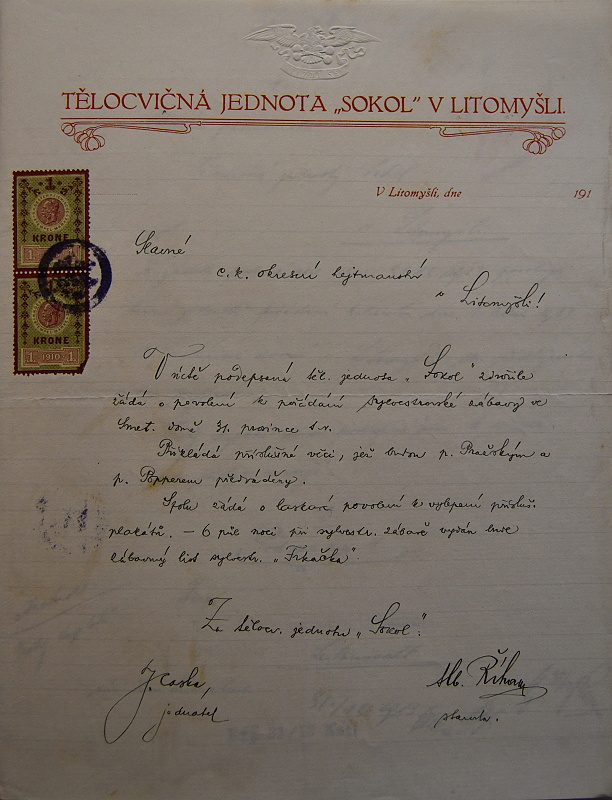 TĚLOCVIČNÁ JEDNOTA „SOKOL" V LITOMYŠLI.
V Litomyšli, dne 191
1
KRONE
1 1
KRONE
1 1910 1
Slavné
c. k. okresní hejtmanství
v Litomyšli!
V úctě podepsaná těl. jednota „Sokol" zdvořile
žádá o povolení k pořádání sylvestrovské zábavy ve
Smet. domě 31. prosince t. r.
Přikládá příslušné věci, jež budou p. Pračským a
p. Popperem předváděny.
Spolu žádá o laskavé povolení k vylepení přísluš.
plakátů. — O půl noci při sylvestr. zábavě vydán bude
zábavný list sylvestr. „Frkačka".
Za tělocv. jednotu „Sokol":
J. Caska, Alb. Říha
jednatel starosta.